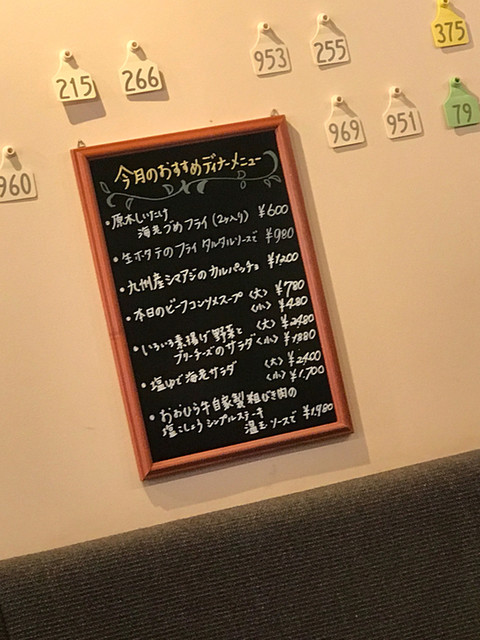 215
266
953
255
375
960
969
951
79
今月のおすすめディナーメニュー
・原木しいたけ
海老づめフライ(2ヶ入り) ¥600
・生ホタテのフライ タルタルソースで ¥980
・九州産シマアジのカルパッチョ ¥1,200
・本日のビーフコンソメスープ 〈大〉 ¥780
〈小〉 ¥480
・いろいろ素揚げ野菜と 〈大〉 ¥2480
ブリーチーズのサラダ 〈小〉 ¥1880
・塩ゆで海老サラダ 〈大〉 ¥2400
〈小〉 ¥1,700
・おおひら牛自家製粗びき肉の
塩こしょうシンプルステーキ
温玉ソースで ¥1,980